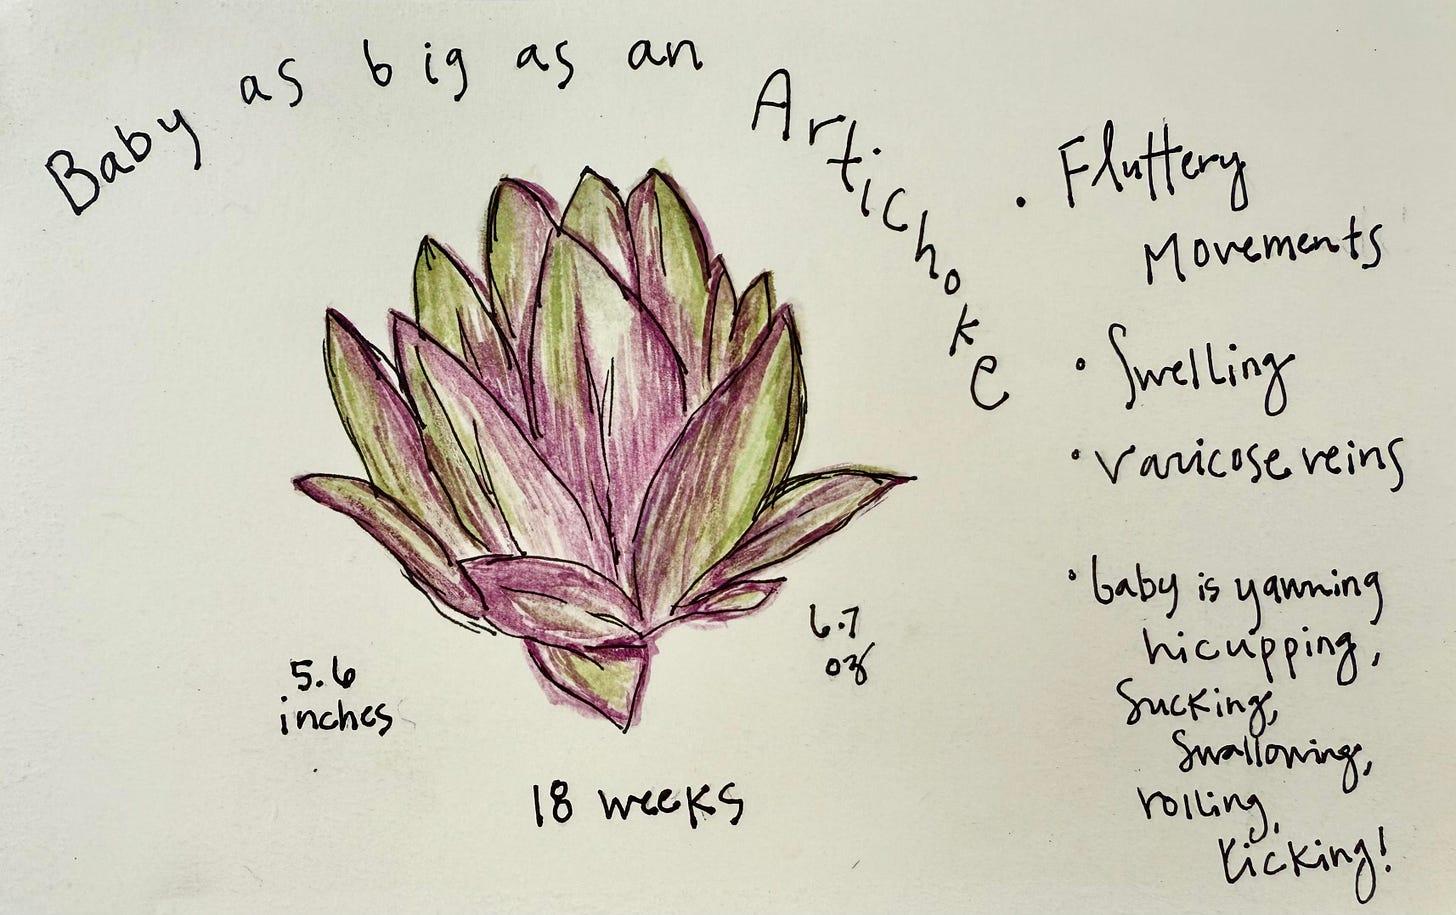 Baby as big as an Artichoke
• Fluttery
Movements
• Swelling
• varicose veins
• baby is yawning
hicupping,
Sucking,
Swallowing,
rolling,
kicking!
5.6
inches
6.7
oz
18 weeks